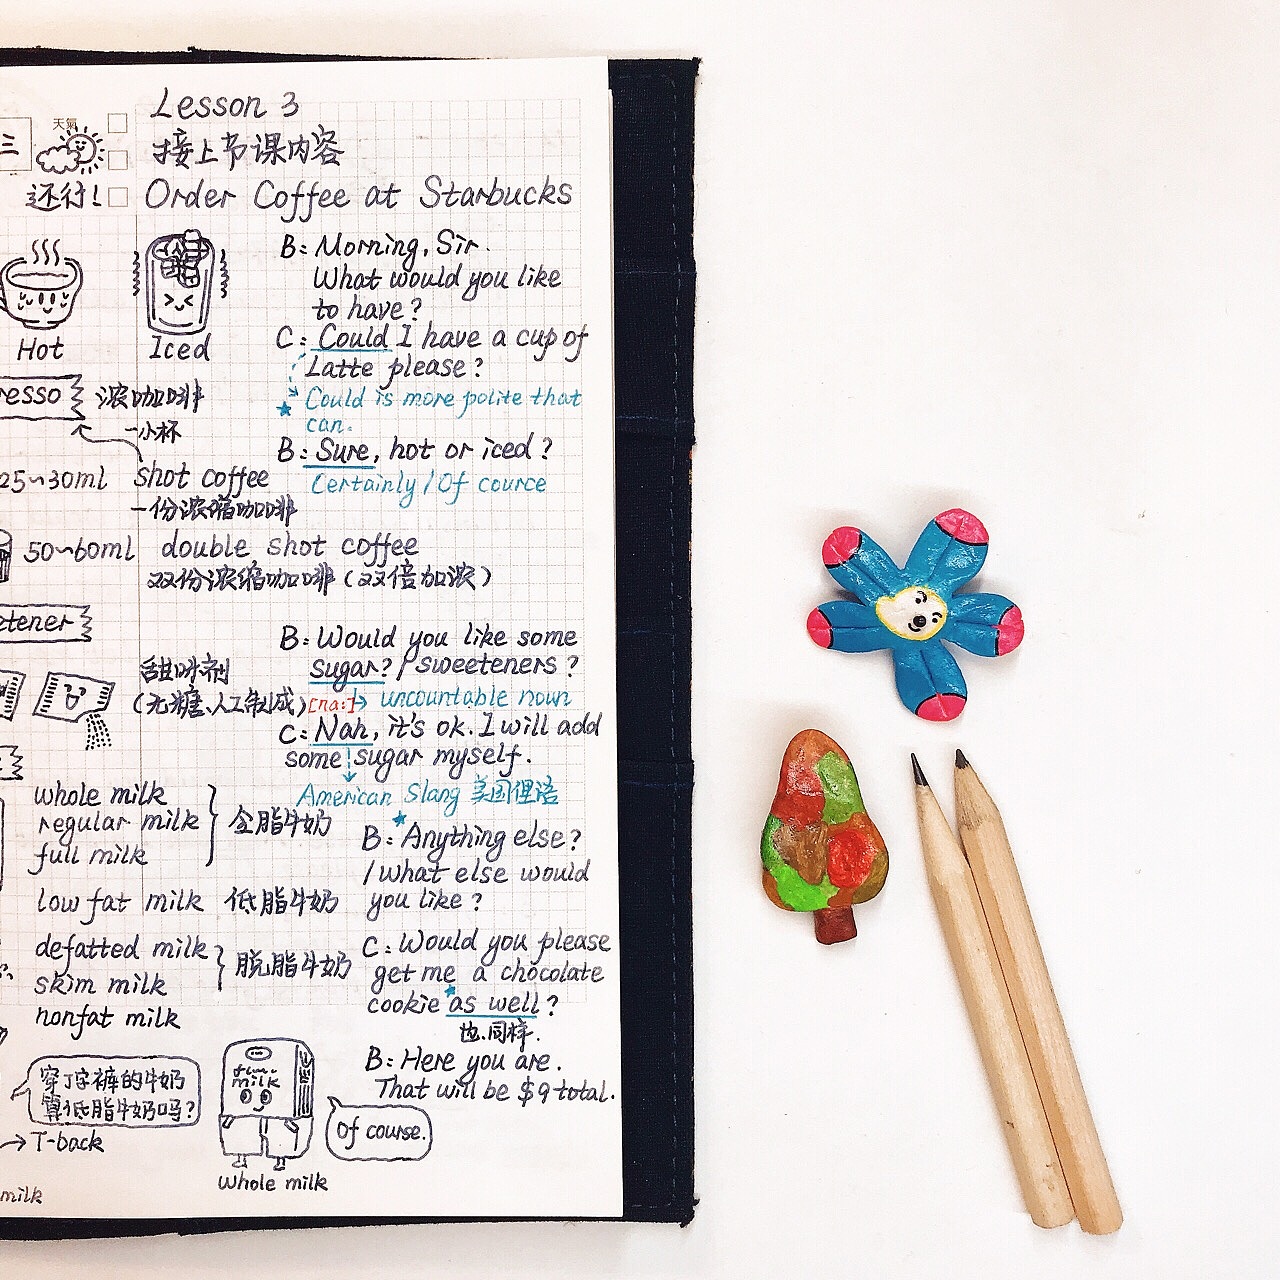 天氣
三
还行!
Lesson 3
接上节课内容
Order Coffee at Starbucks
Hot
Iced
B: Morning, Sir.
What would you like
to have?
C: Could I have a cup of
Latte please?
Could is more polite that
can.
B: Sure, hot or iced?
Certainly / Of cource
resso
浓咖啡
一小杯
25~30ml
shot coffee
一份浓缩咖啡
50~60ml
double shot coffee
双份浓缩咖啡(双倍加浓)
etener
甜味剂
(无糖、人工制成)
B: Would you like some
sugar? / sweeteners?
[na:]
uncountable noun
C: Nah, it's ok. I will add
some sugar myself.
American Slang 美国俚语
whole milk
regular milk
full milk
全脂牛奶
low fat milk 低脂牛奶
defatted milk
skim milk
nonfat milk
脱脂牛奶
B: Anything else?
/ What else would
you like?
C: Would you please
get me a chocolate
cookie as well?
也、同样.
B: Here you are.
That will be $9 total.
穿丁字裤的牛奶
算低脂牛奶吗?
T-back
milk
Of course.
Whole milk
milk